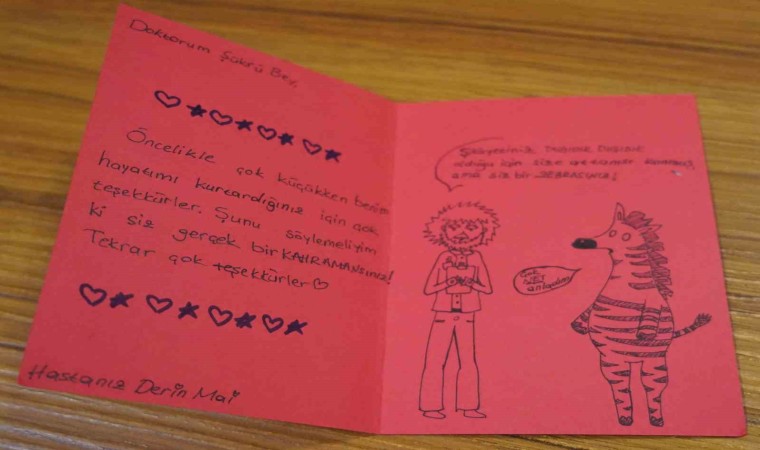 Doktorum Şükrü Bey,
Öncelikle çok küçükken benim
hayatımı kurtardığınız için çok
teşekkürler. Şunu söylemeliyim
ki siz gerçek bir KAHRAMANsınız!
Tekrar çok teşekkürler
Hastanız Derin Mai
olduğu için size
ama siz bir ZEBRASINIZ!